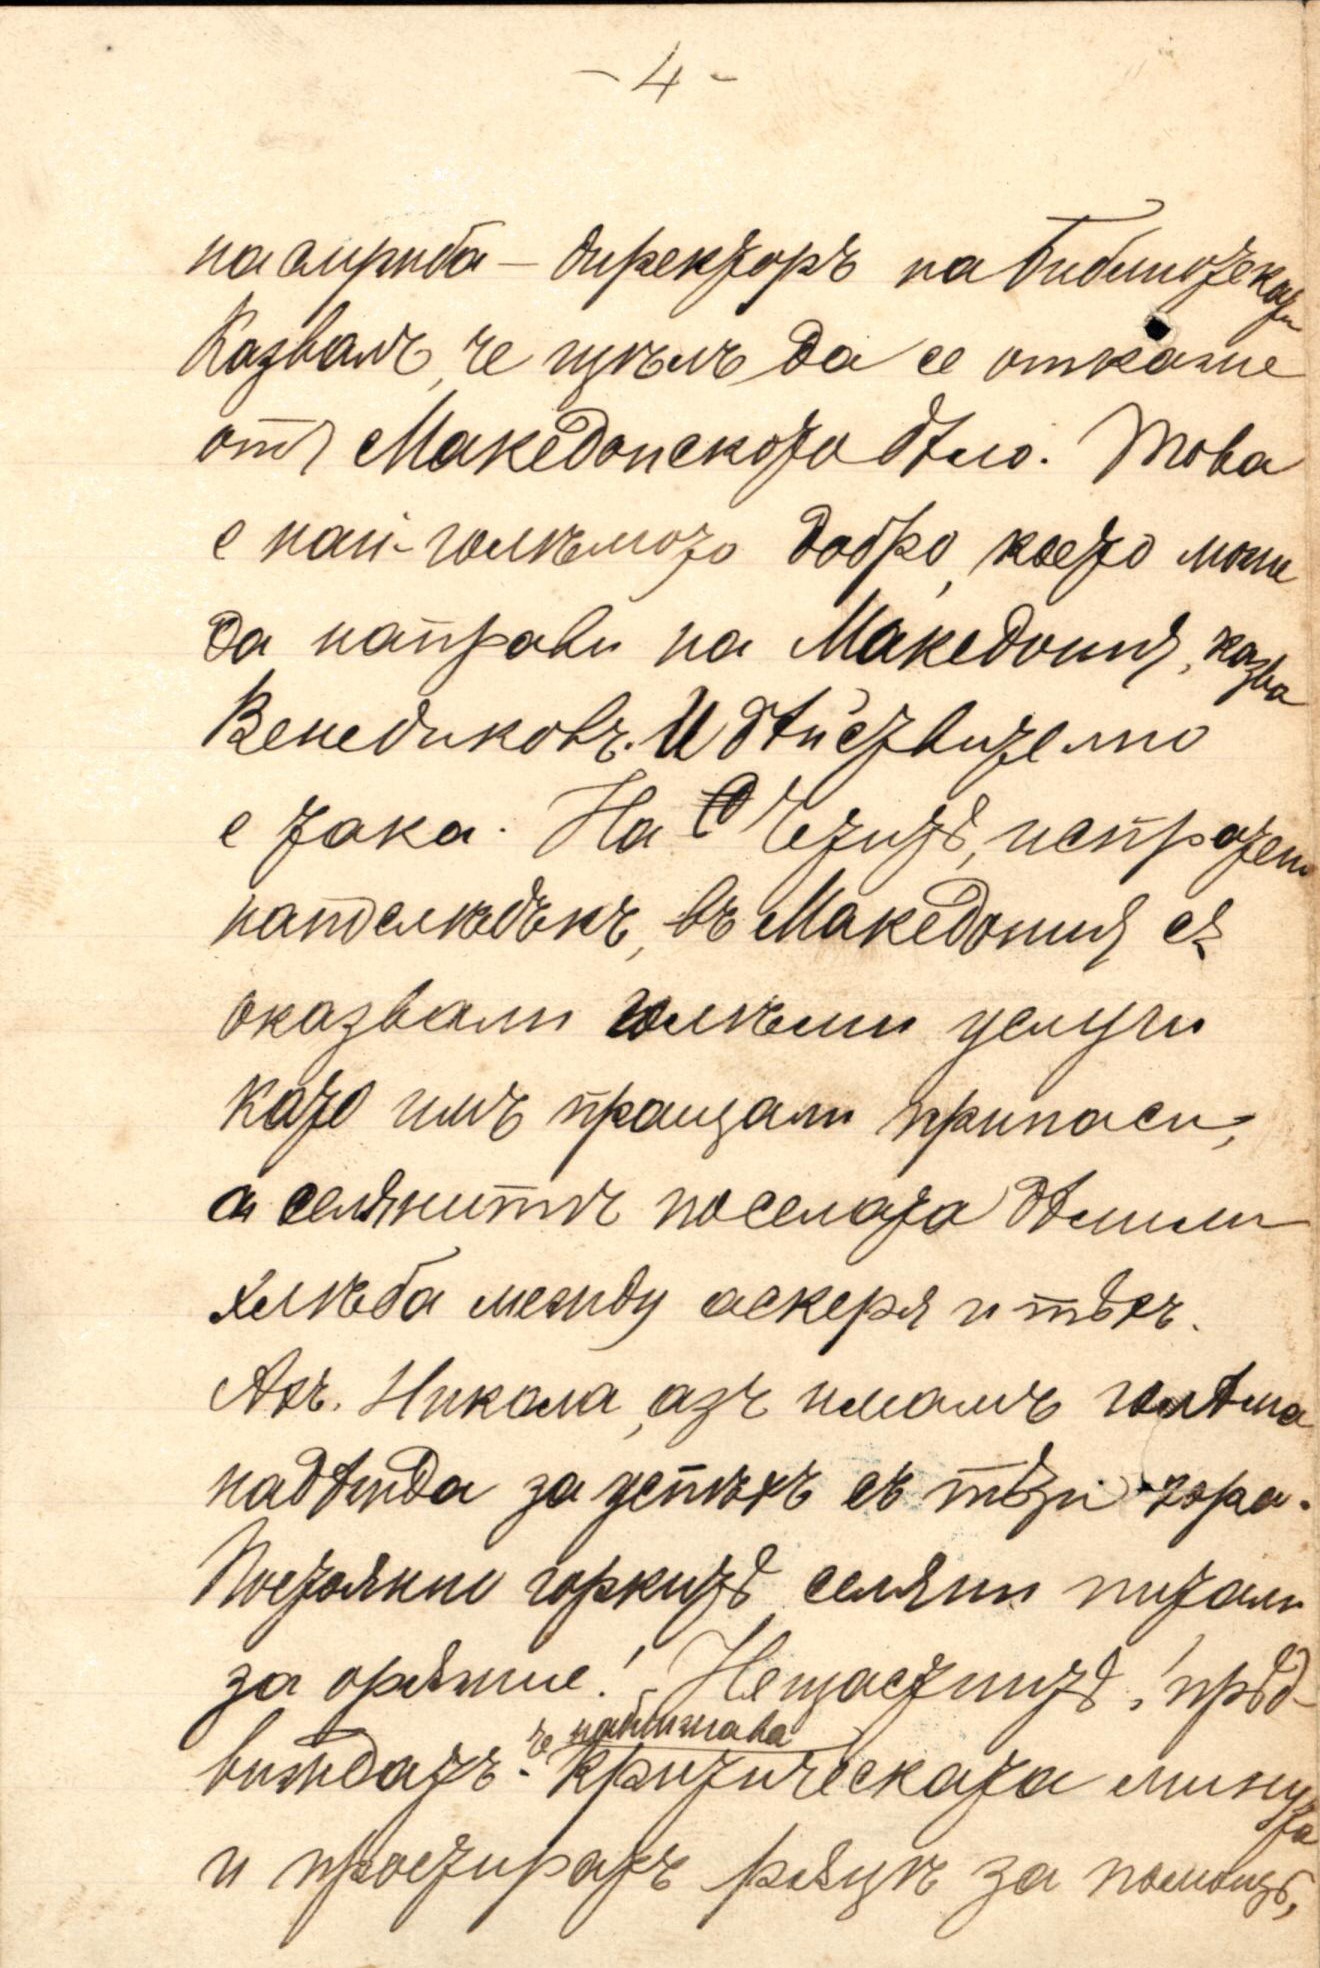 - 4 -
на служба – директоръ на библиотеката
Казвалъ, че щѣлъ да се откаже
отъ Македонското дѣло. Това
е най-голѣмото добро, което може
да направи на Македония, казва
Венедиковъ. И дѣйствително
е така. На Четитѣ, испратени
напослѣдъкъ, въ Македония сѫ
оказвали голѣми услуги
като имъ пращали припаси,
а селянитѣ по селата дѣлили
хлѣба между аскеря и тѣхъ.
Ахъ. Никола, азъ имамъ голѣма
надѣжда за успѣхъ съ тѣзи хора.
Постоянно горкитѣ селяни питали
за орѫжие! Нещастнитѣ! прѣд-
виждатъ че наближава критическата минута
и простиратъ рѫцѣ за помощь,